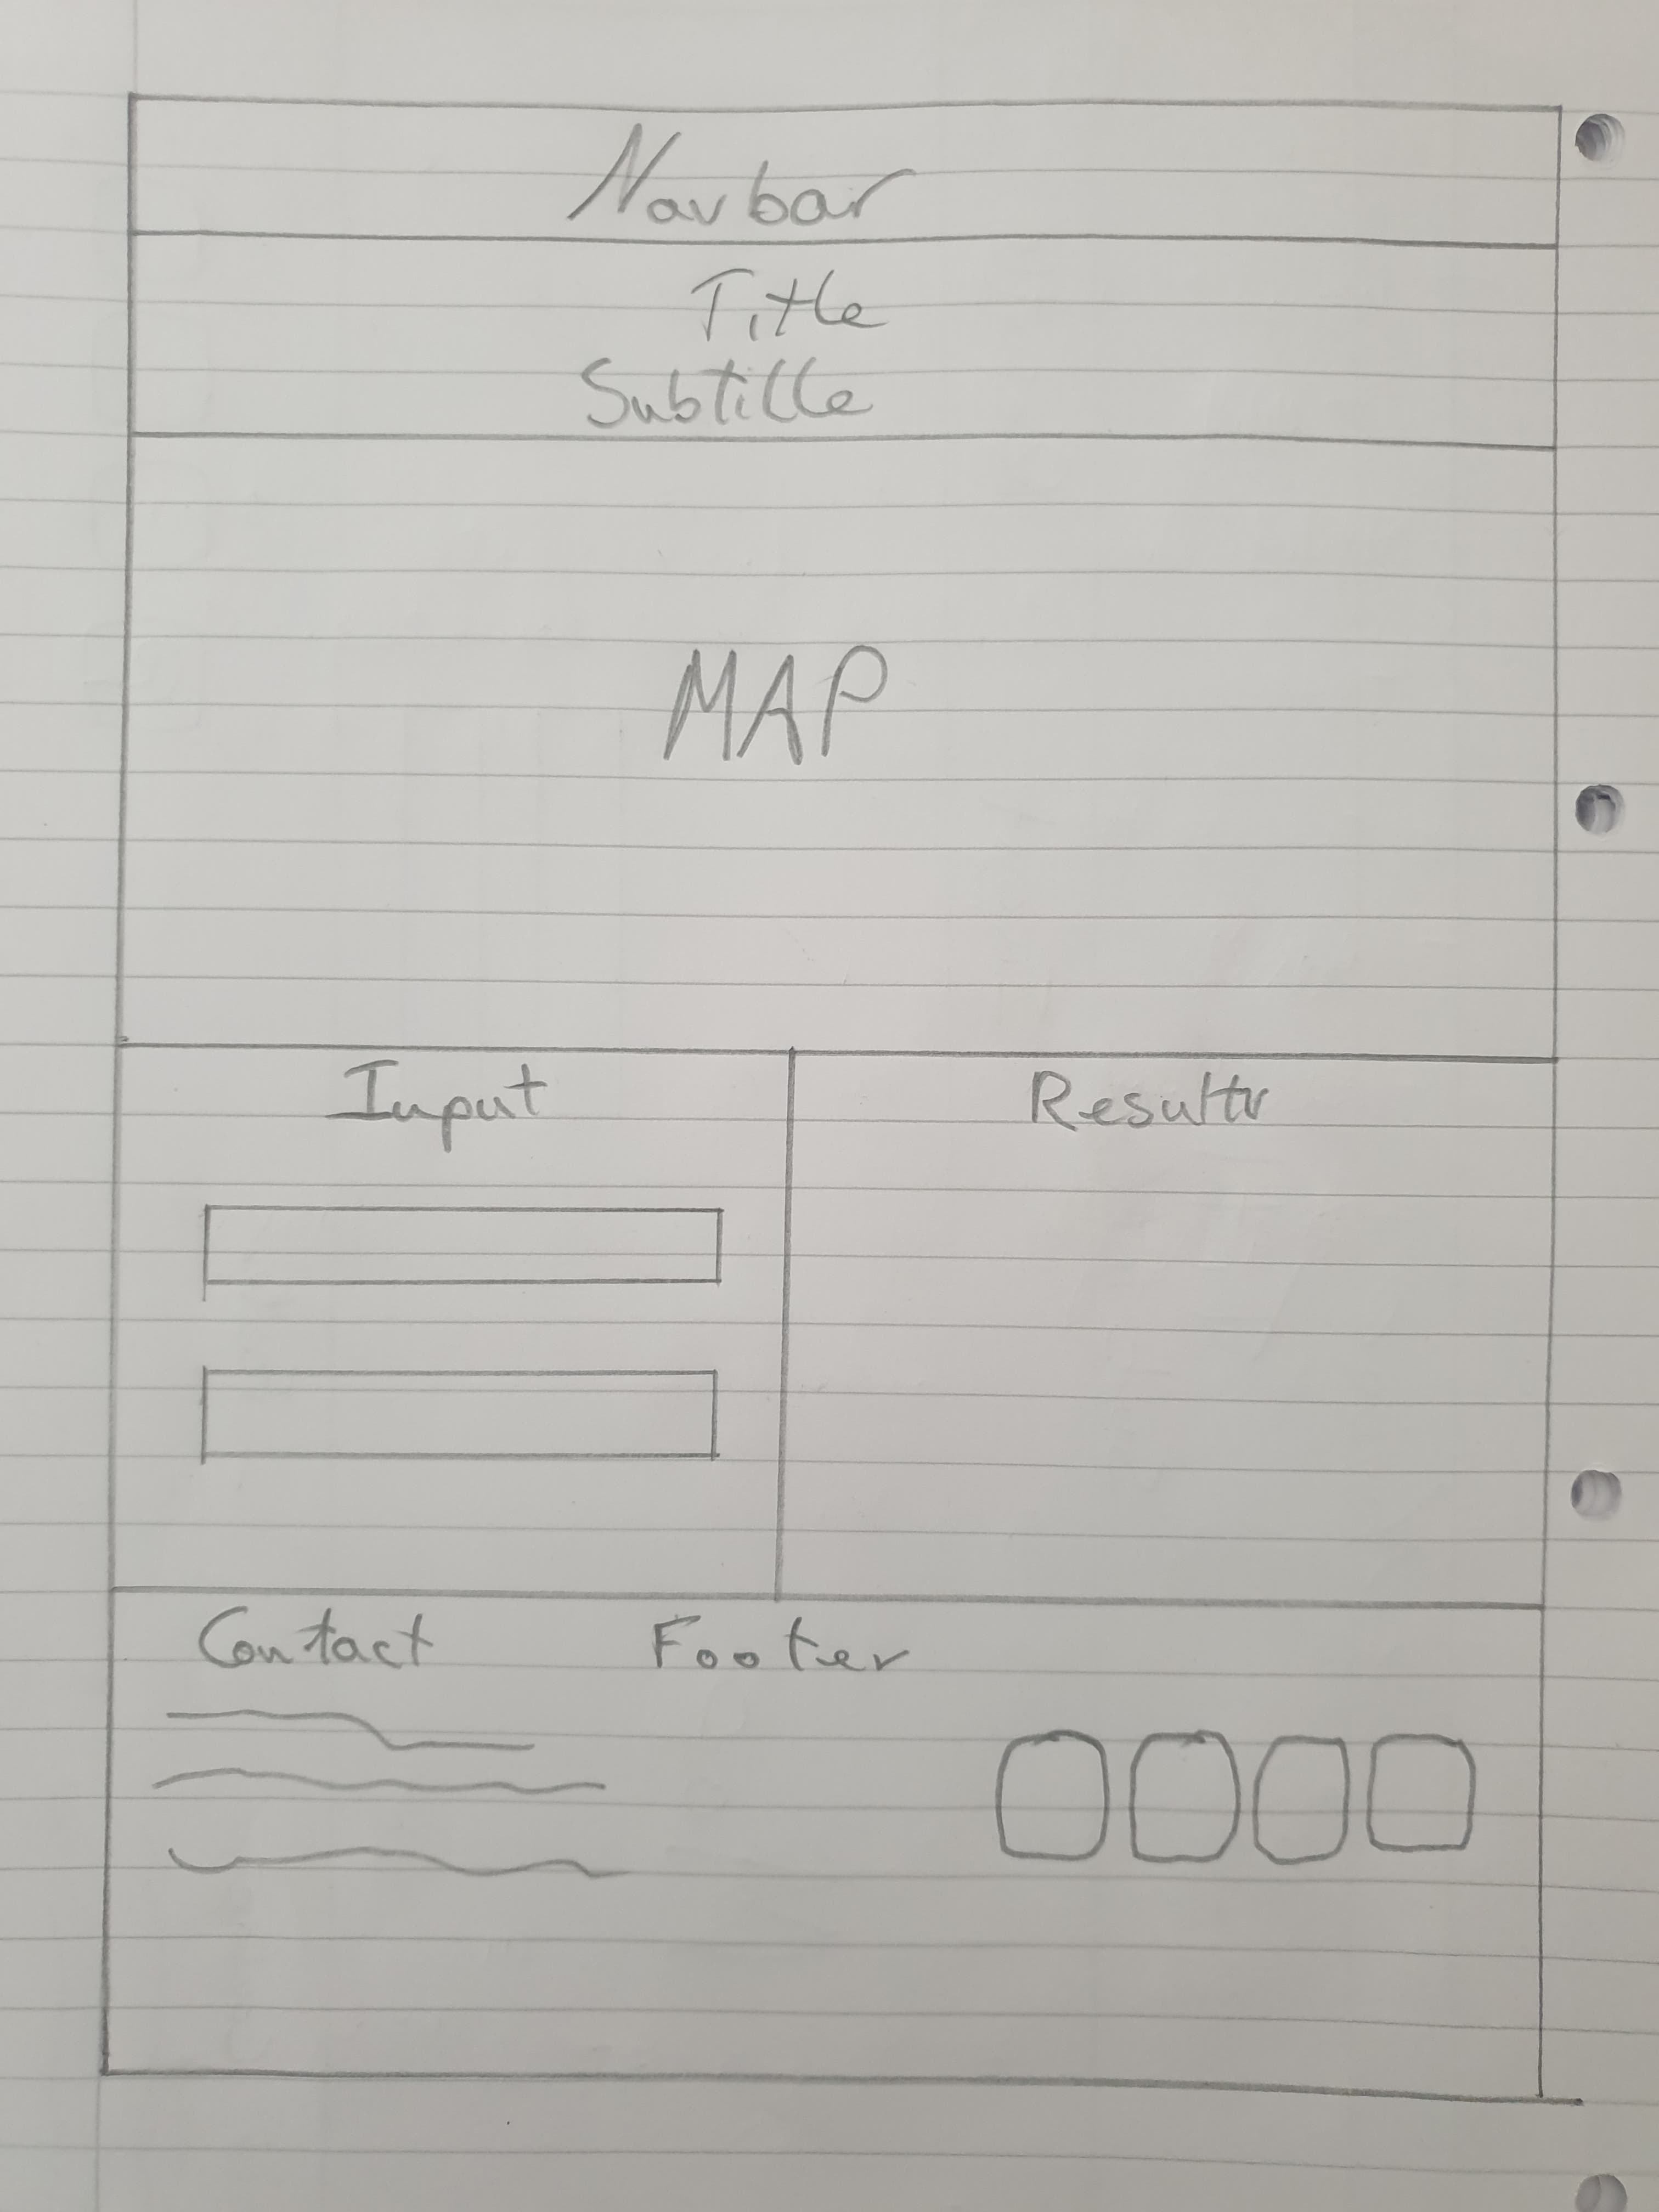 Navbar
Title
Subtitle
MAP
Input
Results
Contact Footer